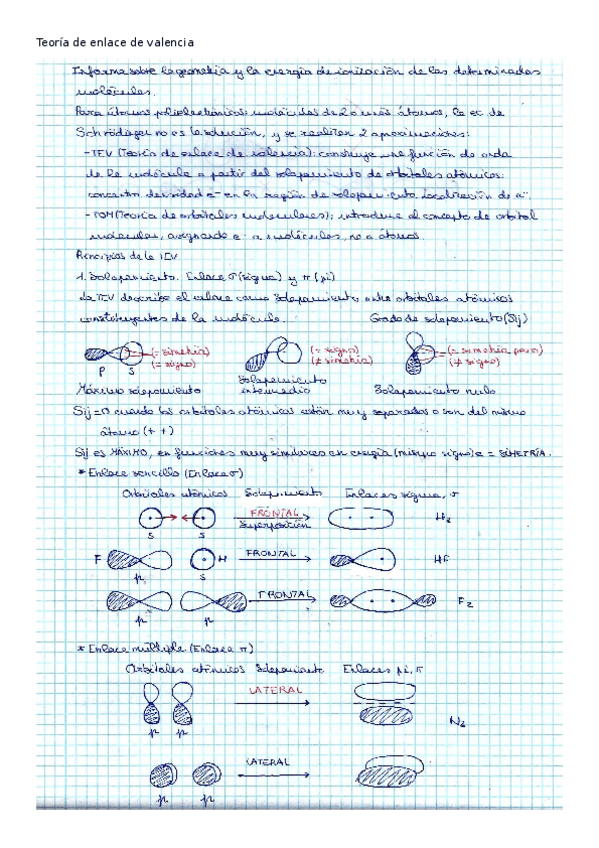 Teoría de enlace de valencia
Informa sobre la geometría y la energía de ionización de las determinadas
moléculas.
Para átomos polielectrónicos: moléculas de 2 o más átomos, la ec de
Schrödinger no es la solución, y se realizan 2 aproximaciones:
- TEV (Teoría de enlace de valencia): construye una función de onda
de la molécula a partir del solapamiento de orbitales atómicos:
concentra densidad e⁻ en la región de solapamiento, localización de e⁻.
- TOM (Teoría de orbitales moleculares): introduce el concepto de orbital
molecular, asignando e⁻ a moléculas, no a átomos.
Principios de la TEV
1. Solapamiento. Enlace σ (sigma) y π (pi)
La TEV describe el enlace como solapamiento entre orbitales atómicos
constituyentes de la molécula. Grado de solapamiento (Sij)
(= simetría) (= signo) (= simetría pero)
(= signo) (≠ simetría) (≠ signo)
P S
Máximo solapamiento Solapamiento intermedio Solapamiento nulo
Sij = 0 cuando los orbitales atómicos están muy separados o son del mismo
átomo (+ +)
Sij es MÁXIMO, en funciones muy similares en energía (mismo signo) e = SIMETRÍA.
* Enlace sencillo (Enlace σ)
Orbitales atómicos Solapamiento Enlaces sigma, σ
FRONTAL
Superposición
H₂
S S
F H FRONTAL HF
p S
FRONTAL F₂
p p
* Enlace múltiple (Enlace π)
Orbitales atómicos Solapamiento Enlaces pi, π
LATERAL
N₂
p p
LATERAL
p p